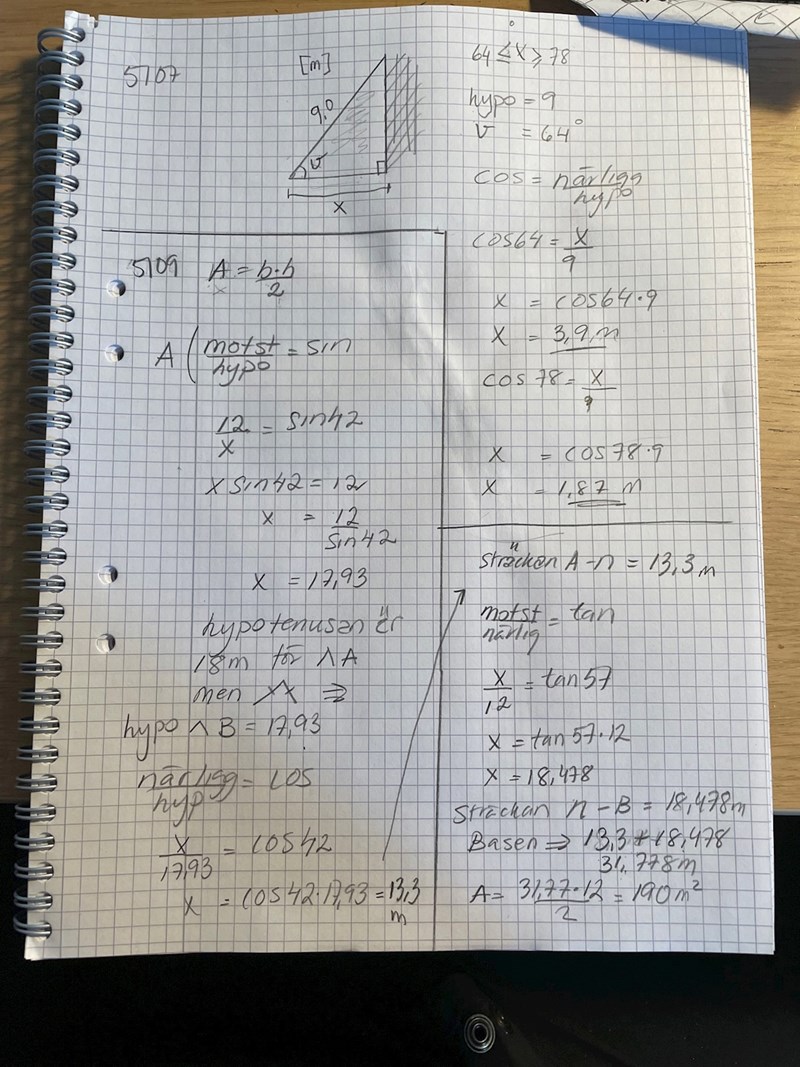 5107
[m]
9,0
v
x
64 ≤ x ≥ 78
hypo = 9
v = 64°
cos = närligg/hypo
cos64 = x/9
x = cos64·9
x = 3,9 m
cos 78 = x/9
x = cos78·9
x = 1,87 m
5109 A = b·h/2
A ( motst/hypo = sin
12/x = sin42
x sin42 = 12
x = 12/sin42
x = 17,93
hypotenusan är
18m för ∧A
men ⇒
hypo ∧ B = 17,93
närligg/hyp = cos
x/17,93 = cos42
x = cos42·17,93 = 13,3
m
sträckan A-n = 13,3 m
motst/närlig = tan
x/12 = tan57
x = tan57·12
x = 18,478
Sträckan n-B = 18,478m
Basen ⇒ 13,3 + 18,478
31,778m
A = 31,77·12/2 = 190m²